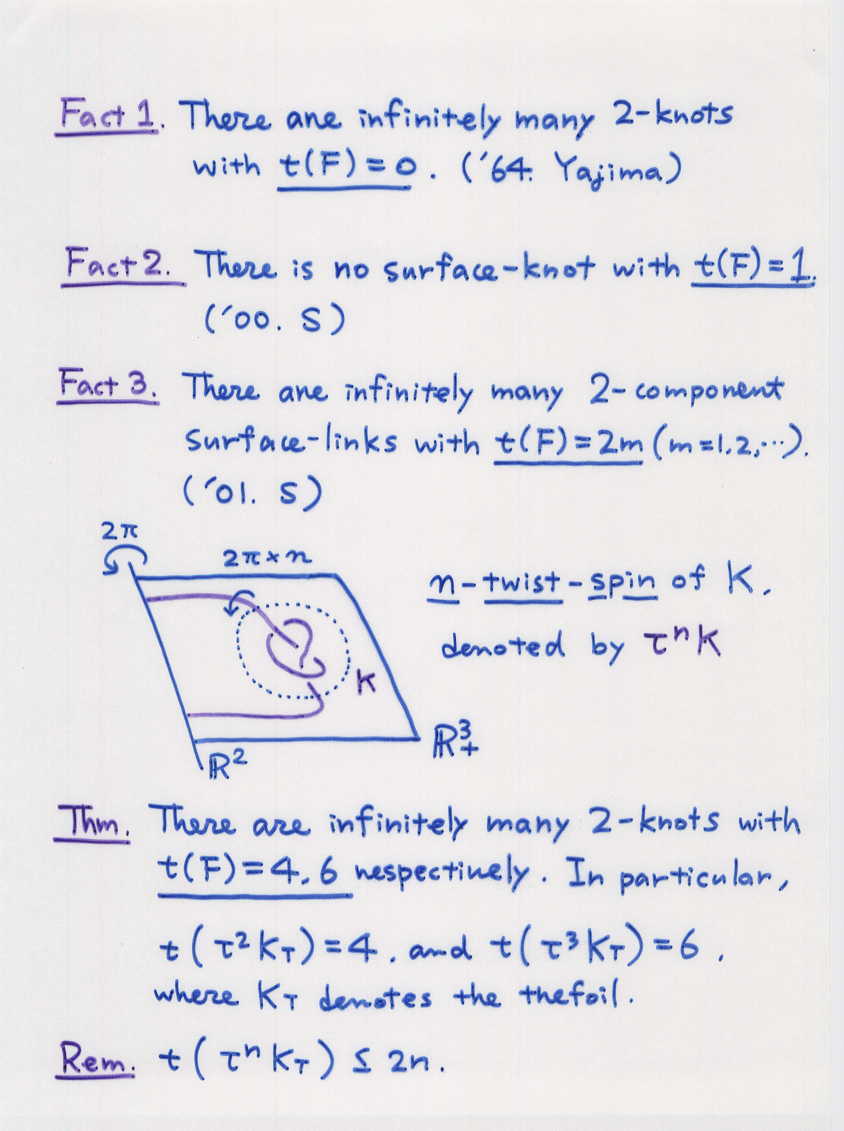 Fact 1. There are infinitely many 2-knots
with t(F)=0. ('64. Yajima)
Fact 2. There is no surface-knot with t(F)=1.
('00. S)
Fact 3. There are infinitely many 2-component
surface-links with t(F)=2m (m=1,2,⋯).
('01. S)
2π
2π×n
n-twist-spin of K,
denoted by τⁿK
K
ℝ³₊
ℝ²
Thm. There are infinitely many 2-knots with
t(F)=4,6 respectively. In particular,
t(τ²K_T)=4, and t(τ³K_T)=6,
where K_T denotes the thefoil.
Rem. t(τⁿK_T) ≤ 2n.